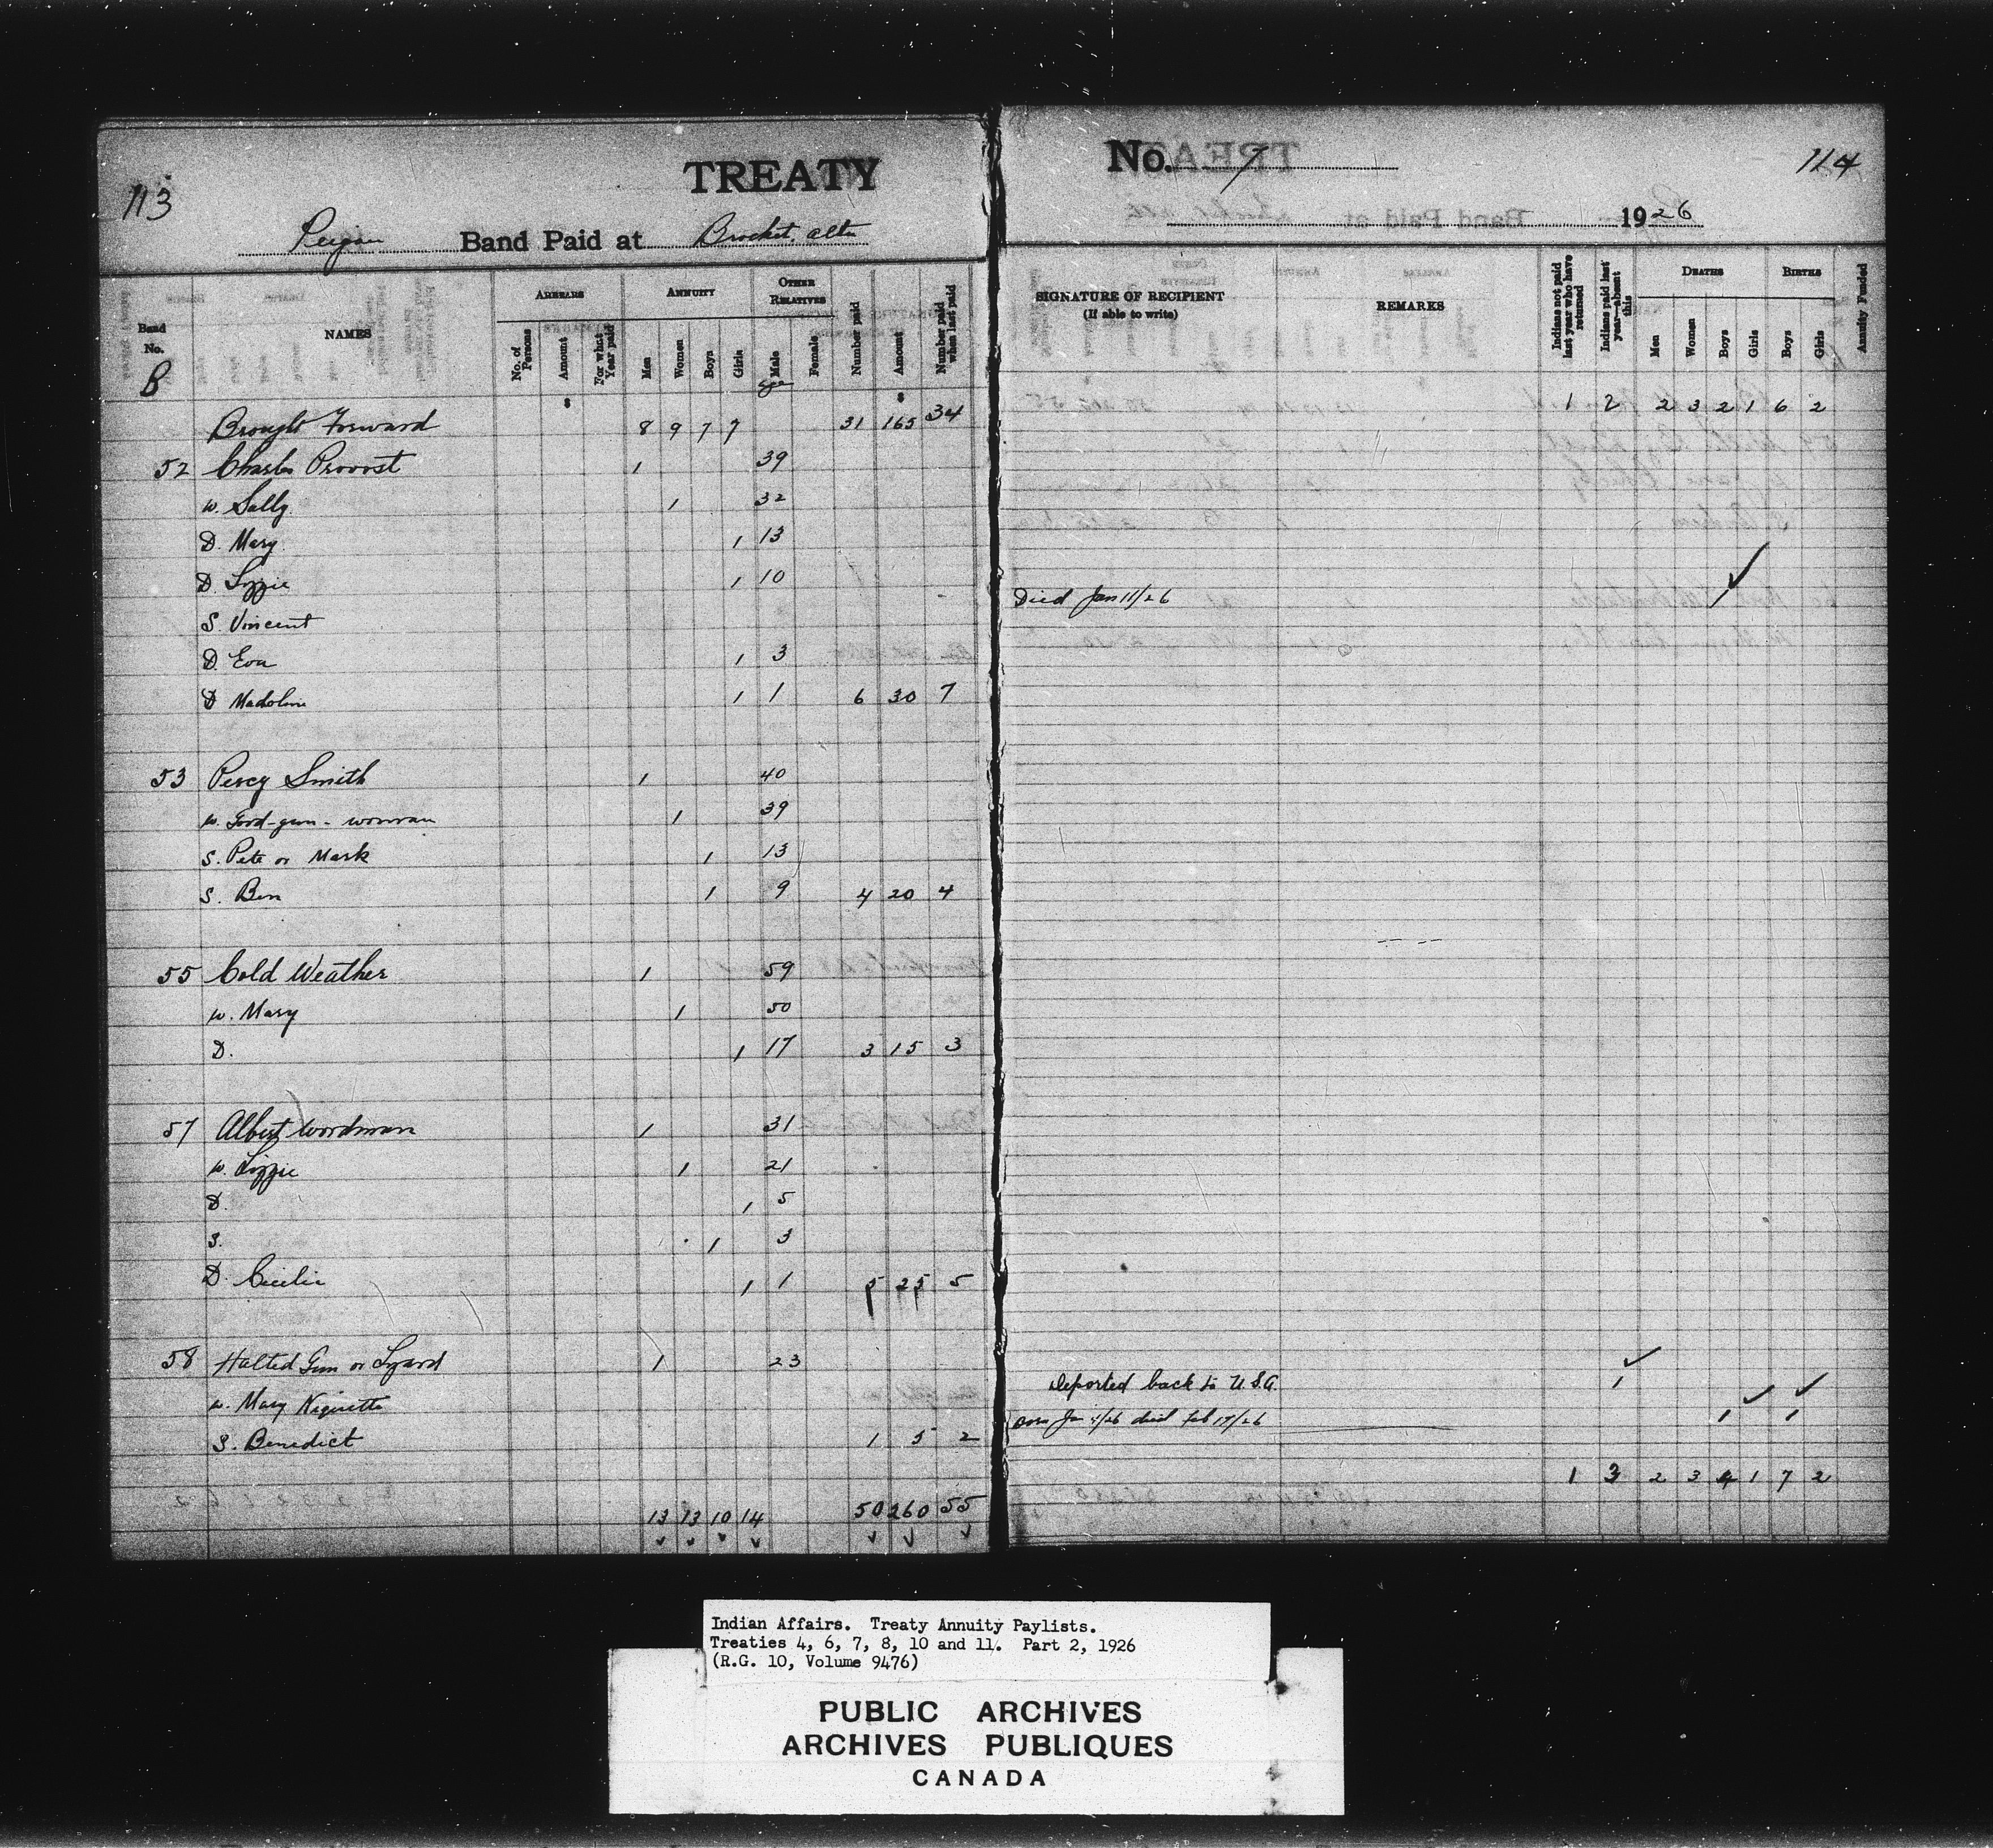 113
TREATY
No. 7
114
Peigan Band Paid at Brocket, Alta
1926
Band No.
NAMES
ARREARS
ANNUITY
OTHER RELATIVES
No. of Persons
Amount
For what Year paid
Men
Women
Boys
Girls
Male
Female
Number paid
Amount
Number paid when last paid
SIGNATURE OF RECIPIENT
(If able to write)
REMARKS
Indians not paid last year who have returned
Indians paid last year—absent this
DEATHS
BIRTHS
Men
Women
Boys
Girls
Boys
Girls
Annuity Funded
B
age
$ $
Brought Forward 8 9 7 7 31 165 34 1 2 2 3 2 1 6 2
52 Charles Provost 1 39
w. Sally 1 32
D. Mary 1 13
D. Lizzie 1 10
S. Vincent Died Jan 11/26 1
D. Eva 1 3
D Madoline 1 1 6 30 7
53 Percy Smith 1 40
w. Good-gun-woman 1 39
S. Pete or Mark 1 13
S. Ben 1 9 4 20 4
55 Cold Weather 1 59
w. Mary 1 50
D. 1 17 3 15 3
57 Albert Woodman 1 31
w. Lizzie 1 21
D. 1 5
S. 1 3
D. Cecilia 1 1 5 25 5
58 Halted Gun or Lizard 1 23
w. Mary Deported back to U.S.A. 1
S. Benedict 1 5 2 Born Jan /26 died Feb 17/26 1 1
1 3 2 3 4 1 7 2
13 13 10 14 50 260 55
Indian Affairs. Treaty Annuity Paylists.
Treaties 4, 6, 7, 8, 10 and 11. Part 2, 1926
(R.G. 10, Volume 9476)
PUBLIC ARCHIVES
ARCHIVES PUBLIQUES
CANADA